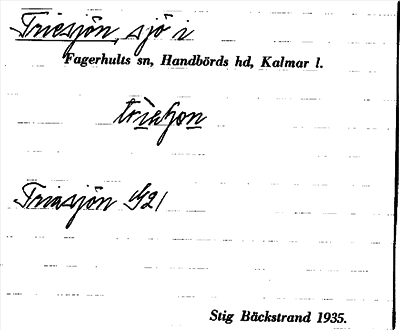 Triesjön, sjö i
Fagerhults sn, Handbörds hd, Kalmar l.
Triasjön G21
Stig Bäckstrand 1935.